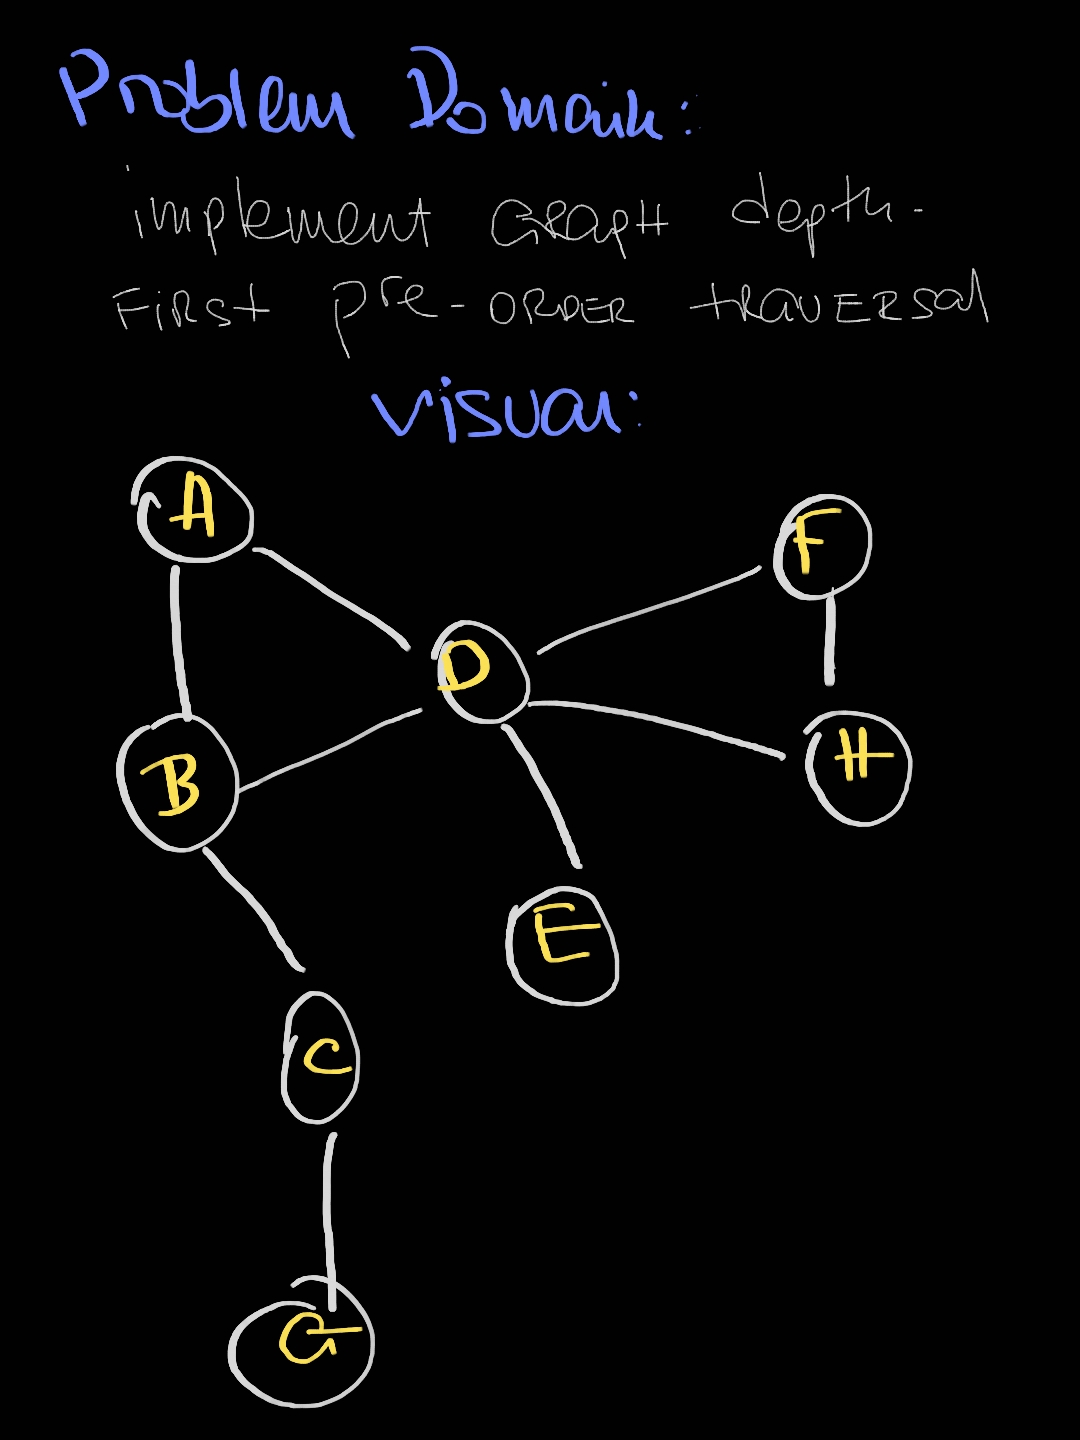 Problem Domain:
implement GRAPH depth-
FIRST pre-ORDER traversal
visual:
A
F
D
H
B
E
C
G